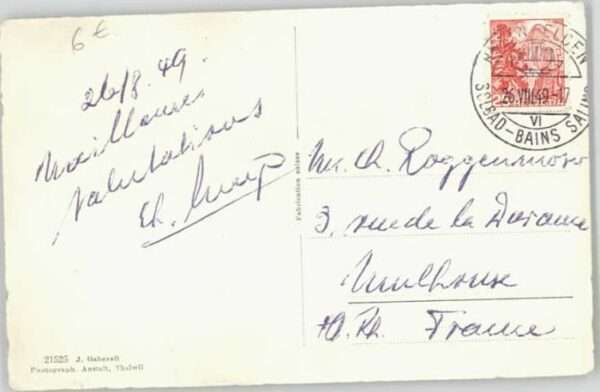 6 €
26/8.49.
Meilleures
salutations
Ch.
Fabrication suisse
21525 J. Gaberell
Photograph. Anstalt, Thalwil
RHEINFELDEN
26.VIII.49-17
VI
SOLBAD-BAINS SALINS
Mr. Ch.
3, rue de la
Mulhouse
Ht. Rh. France